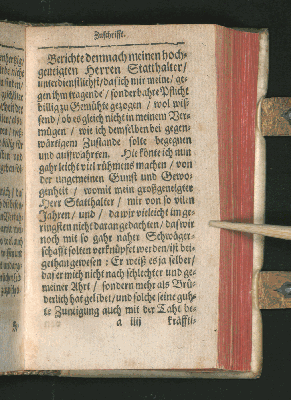 Zuschrifft.
Berichte demnach meinen hoch-
geneigten Herren Statthalter/
unterdienstlichst/ daß ich mir meine/ ge-
gen ihm tragende/ sonderbahre Pflicht
billig zu Gemühte gezogen / wol wis-
send/ ob es gleich nicht in meinem Ver-
mügen / wie ich demselben bei gegen-
wärtigem Zustande solte begegnen
und auffwahrten. Hie könte ich nun
gahr leicht viel rühmens machen / von
der ungemeinen Gunst und Gewo-
genheit / womit mein großgeneigter
Herr Statthalter / mir von so vilen
Jahren / und / da wir vieleicht im ge-
ringsten nicht daran gedachten/ daß wir
noch mit so gahr naher Schwäger-
schafft solten verknüpfet werden/ ist bei-
gethan gewesen: Er weiß es ja selber/
daß er mich nicht nach schlechter und ge-
meiner Ahrt / sondern mehr als Brü-
derlich hat gelibet/ und solche seine guh-
te Zuneigung auch mit der Taht be-
a iiij
kräffti-